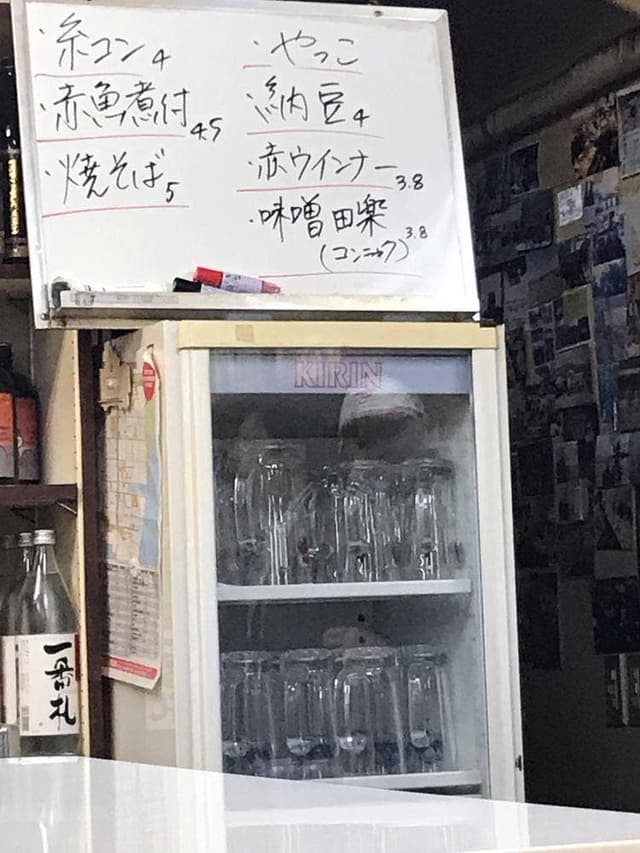 ・糸コン4
・赤魚煮付4.5
・焼そば5
・やっこ
・納豆4
・赤ウインナー3.8
・味噌田楽3.8
(コンニャク)
KIRIN
一番札